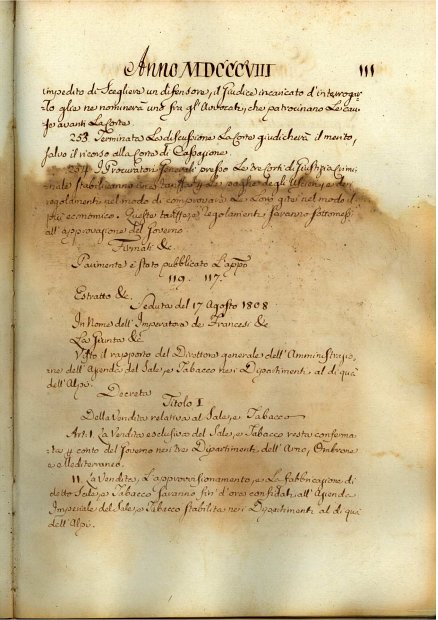 Anno MDCCCVIII 111
impedito di Scegliere un difensore, il Giudice incaricato d'interrogar-
lo glie ne nominerà uno fra gli Avvocati, che patrocinano le cau-
se avanti la Corte.
253 Terminata la discussione la Corte giudicherà il merito,
salvo il ricorso alla Corte di Cassazione.
254 I Procuratori Generali presso le tre Corti di Giustizia Crimi-
nale stabiliranno una tariffa le paghe degli Uscieri, e dei
regolamenti nel modo di comprovare le loro gite nel modo il
più economico. Queste tariffe, e regolamenti saranno sottomessi
all'approvazione del Governo.
Firmati &c.
Parimente è stato pubblicato l'app.
119. 117.
Estratto &c.
Seduta del 17 Agosto 1808
In Nome dell'Imperatore de Francesi &c
La Giunta &c
Visto il rapporto del Direttore generale dell'Amministrazio-
ne dell'Azienda del Sale, e Tabacco nei Dipartimenti al di quà
dell'Alpi.
Decreta
Titolo I.
Della Vendita relativa al Sale, e Tabacco
Art: 1. La Vendita esclusiva del Sale, e Tabacco resta conferma-
ta p conto del Governo nei tre Dipartimenti dell'Arno, Ombrone
e Mediterraneo.
11. La Vendita, l'approvvisionamento, e la fabbricazione di
detto Sale, e Tabacco saranno fin d'ora confidati all'Azienda
Imperiale del Sale, e Tabacco stabilita nei Dipartimenti al di quà
dell'Alpi.